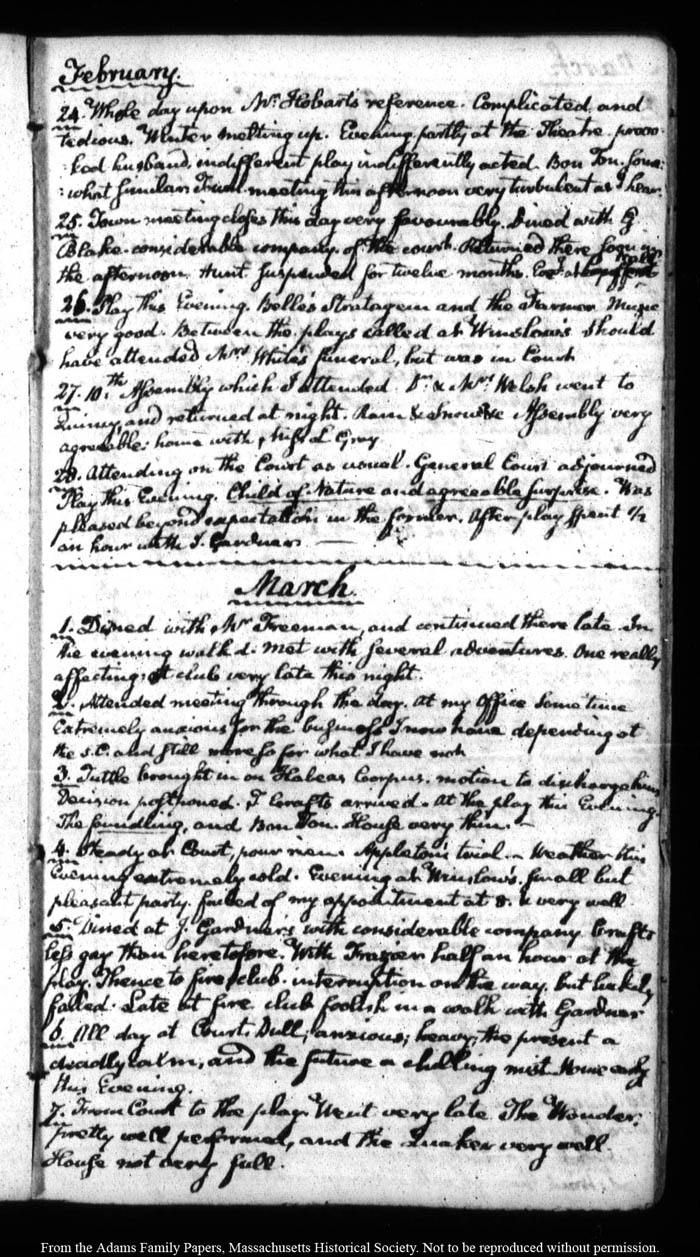 February.
24. Whole day upon Mr. Hobart's reference. Complicated and
tedious. Winter melting up. Evening partly at the Theatre. provo-
:ked husband, indifferent play indifferently acted. Bon Ton. some
:what similar. Town meeting this afternoon very turbulent as I hear
25. Town meeting closes this day very favourably. Dined with G
Blake. considerable company of the court. Returned there soon in
the afternoon. Hunt suspended for twelve months.
26. Play this Evening. Belle's Stratagem and the Farmer Music
very good. Between the plays called at Winslow's should
have attended Mrs. White's funeral, but was in Court
27. 10th Assembly which I attended. Dr. & Mrs. Welsh went to
Quincy, and returned at night. Rain & snow &c Assembly very
agreeable: home with Miss L Gray
28. Attending on the Court as usual. General Court adjourned
Play this Evening. Child of Nature and agreeable surprise. Was
pleased beyond expectation in the former. After play spent 1/2
an hour with J. Gardner.
March.
1. Dined with Mr. Freeman, and continued there late. In
the evening walk'd. met with several adventures. One really
affecting; at club very late this night.
2. Attended meeting through the day. At my Office some time
Extremely anxious for the business I now have depending at
the S.C. and still more so for what I have not
3. Tuttle brought in on Habeas Corpus. motion to discharge him
Decision postponed. T Crafts arrived. At the play this Evening.
The foundling, and Bon Ton. House very thin.
4. Steady at Court, pour rien. Appleton's trial. Weather this
Evening extremely cold. Evening at Winslow's. Small but
pleasant party. failed of my appointment at 8. & very well
5. Dined at J. Gardner's with considerable company Crafts
less gay than heretofore. With Frazier half an hour at the
play. Thence to fire club. interruption on the way. but luckily
failed. Late at fire club foolish in a walk with Gardner
6. All day at Court. Dull, anxious, heavy; the present a
deadly calm, and the future a chilling mist Home early
this Evening.
7. From Court to the play. Went very late The Wonder;
pretty well performed, and the Quaker very well.
House not very full.
From the Adams Family Papers, Massachusetts Historical Society. Not to be reproduced without permission.